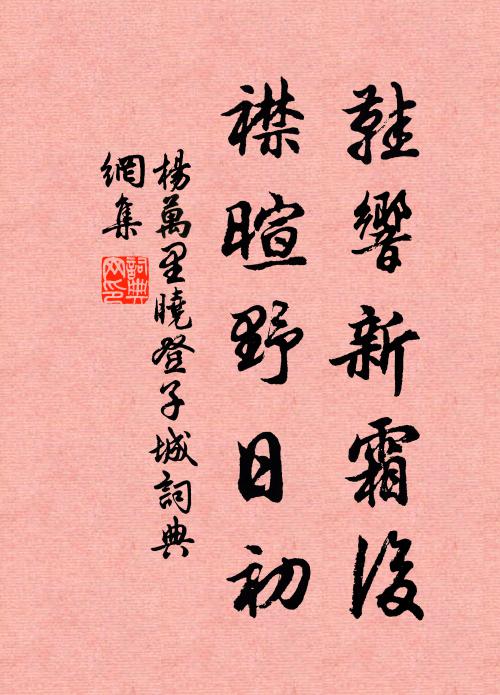 鞋響新霜後
襟暄野日初
楊萬里曉登子城詞典
網集
詞典
网印